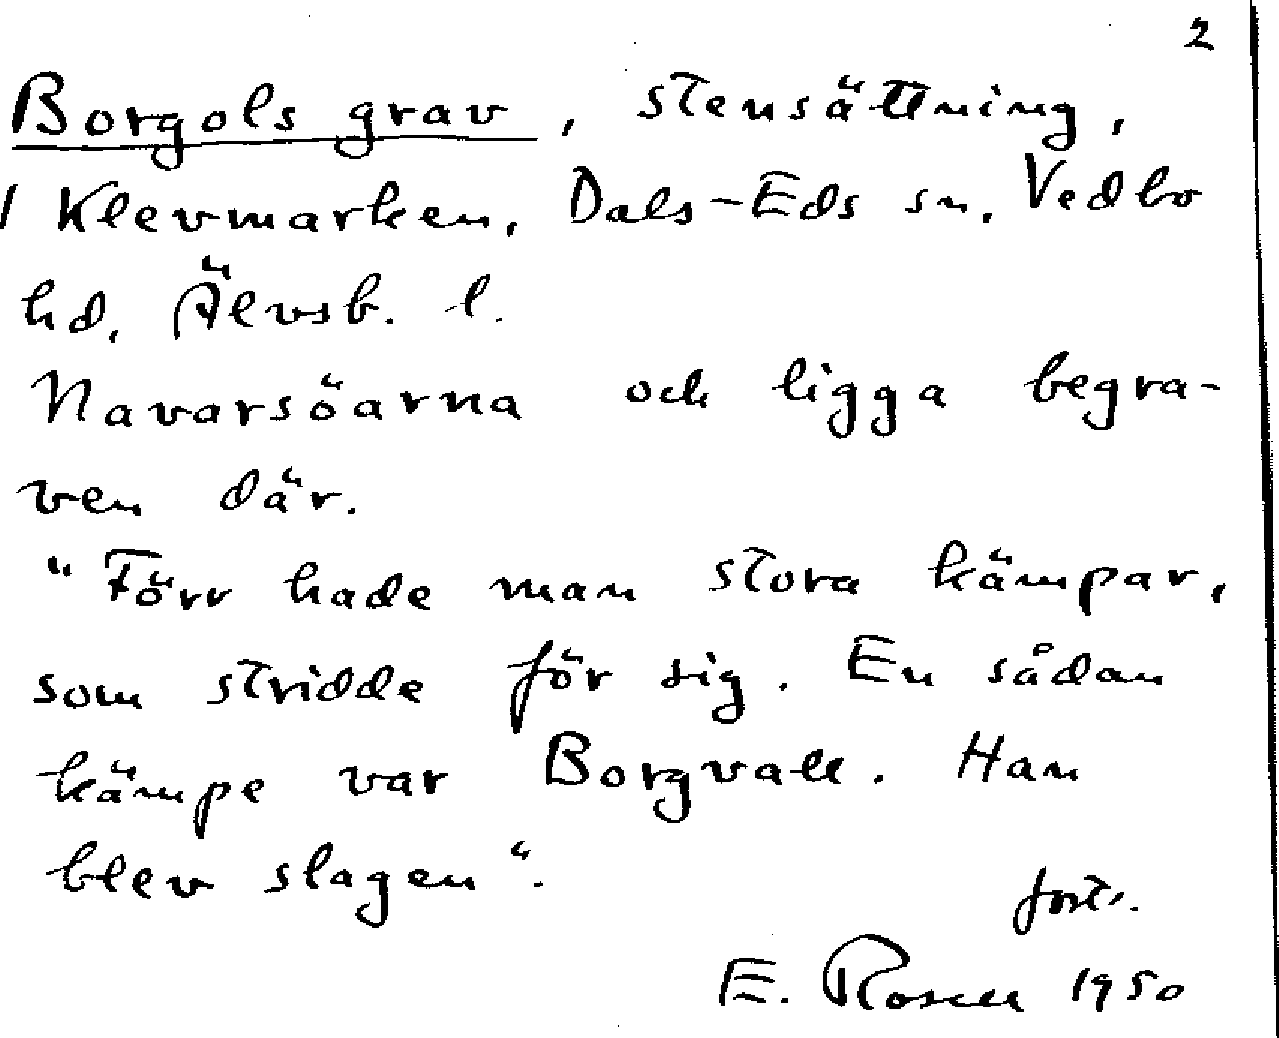 2
Borgols grav, stensättning,
/ Klevmarken, Dals-Eds sn, Vedbo
hd, Älvsb. l.
Navarsöarna och ligga begra-
ven där.
"Förr hade man stora kämpar,
som stridde för sig. En sådan
kämpe var Borgvall. Han
blev slagen".
forts.
E. Rosell 1950